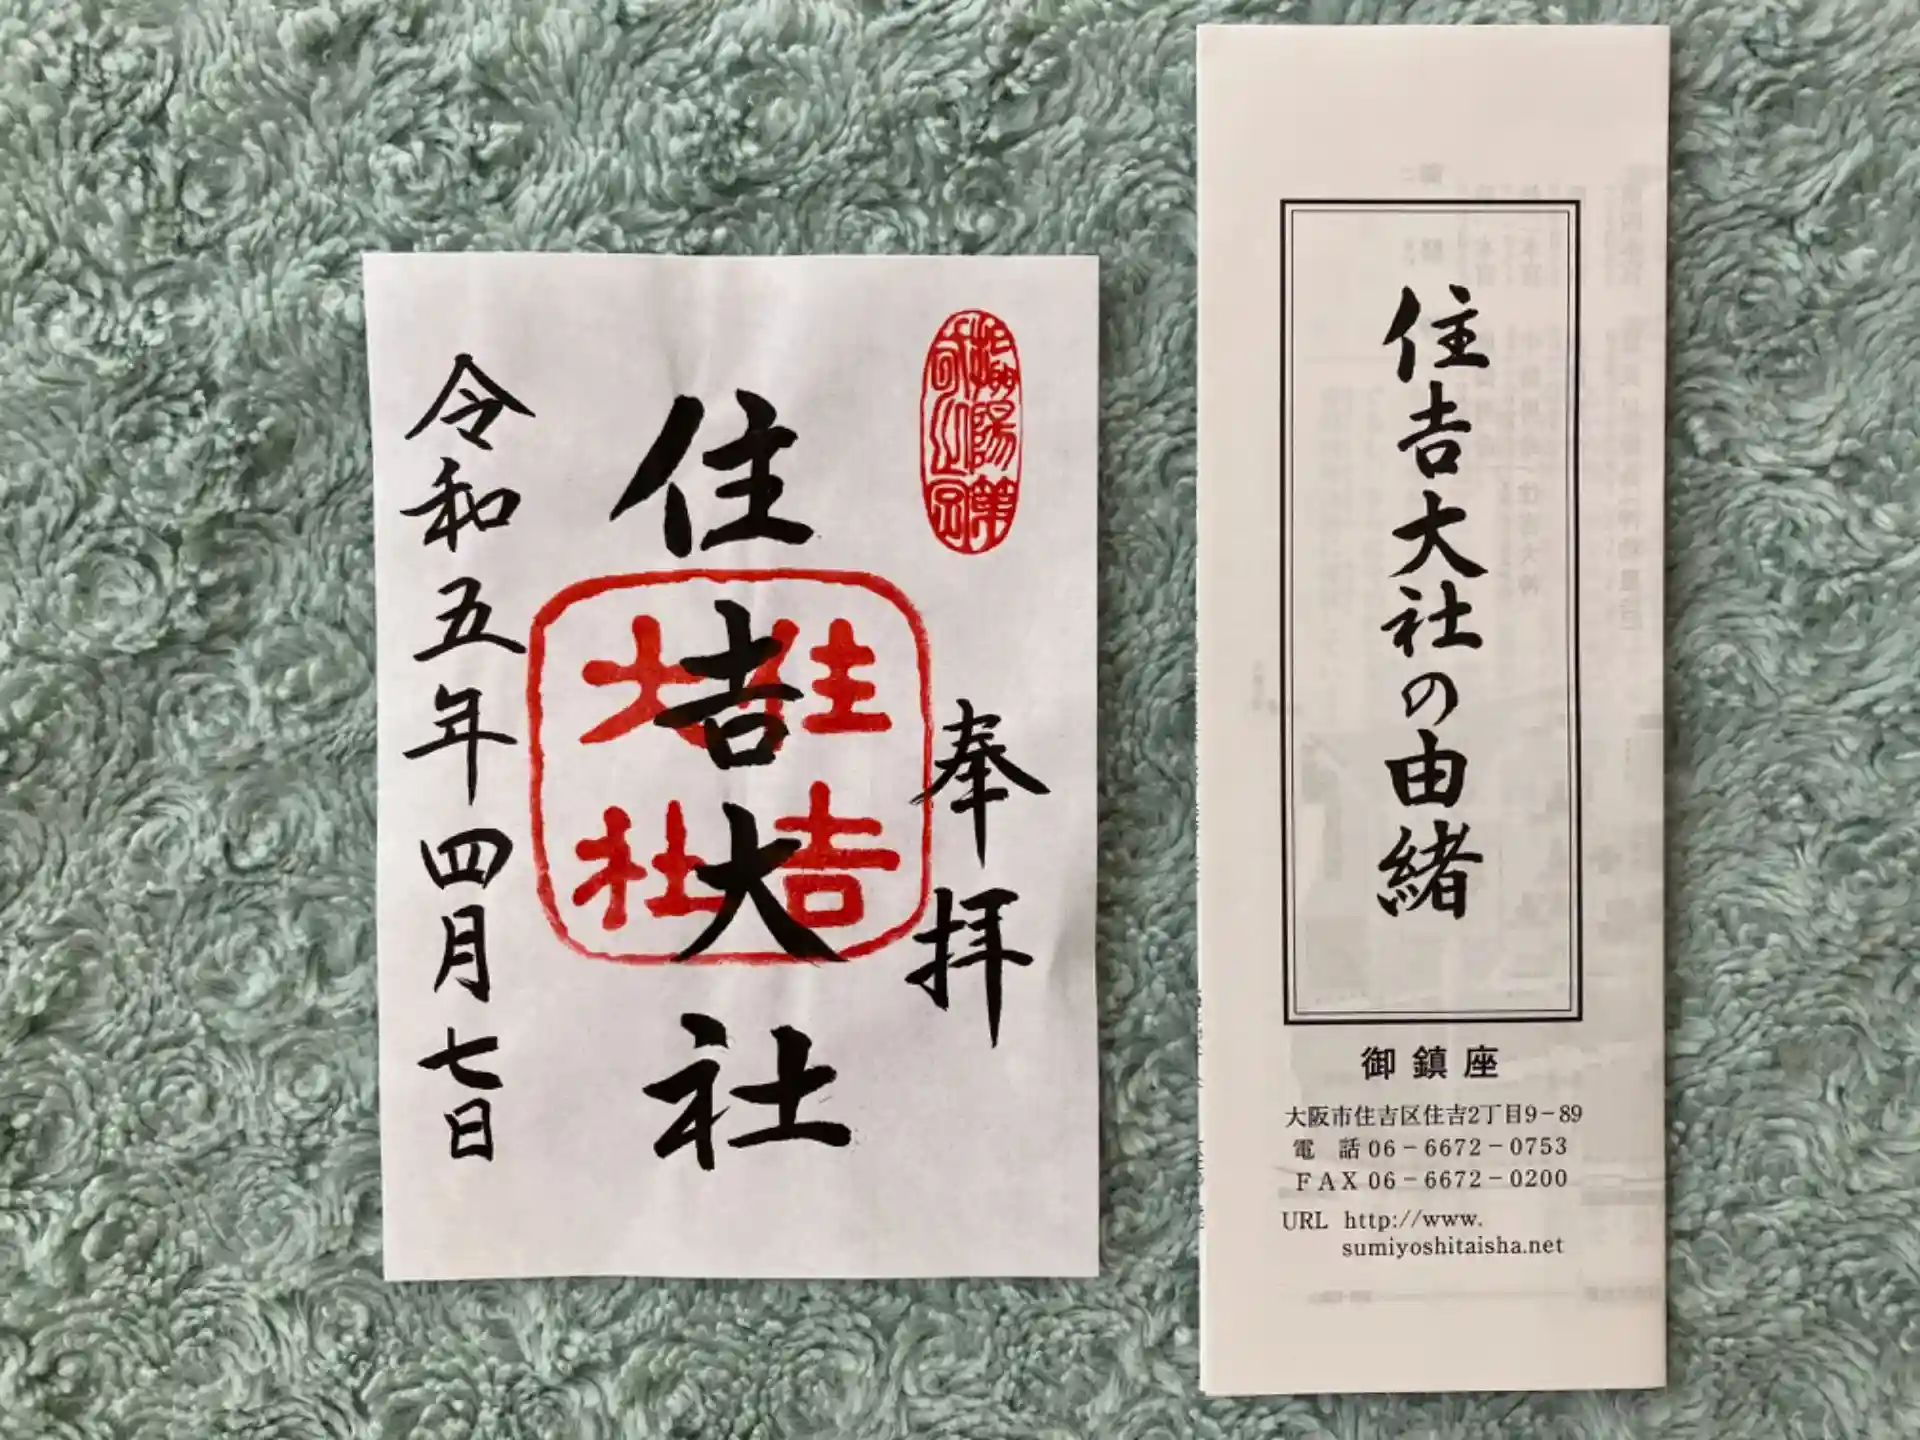 奉拝
住吉大社
住吉
大社
令和五年四月七日
住吉大社の由緒
御鎮座
大阪市住吉区住吉2丁目9－89
電　話 06－6672－0753
FAX 06－6672－0200
URL http://www.
sumiyoshitaisha.net